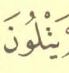 يَتْلُونَ